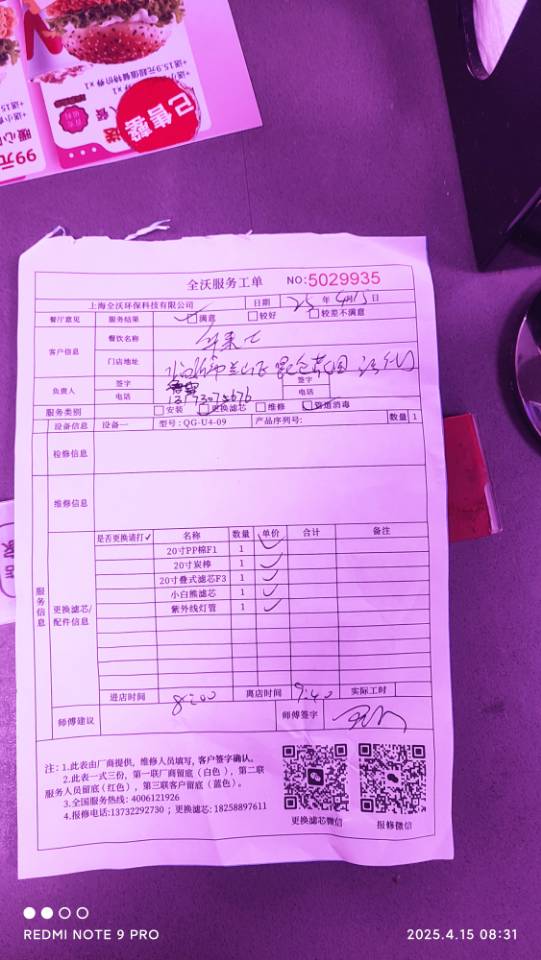 已售罄
99元
全沃服务工单 NO:5029935
上海全沃环保科技有限公司 日期 25 年 4月 15 日
餐厅意见 服务结果 ✓ □满意 □较好 □较差不满意
客户信息 餐饮名称
门店地址
负责人 签字 签字
电话 电话
服务类别 □安装 □更换滤芯 □维修 □管道消毒
设备信息 设备一 型号:QG-U4-09 产品序列号: 数量 1
检修信息
维修信息
服务信息
更换滤芯/配件信息
是否更换请打✓ 名称 数量 单价 合计 备注
20寸PP棉F1 1 ✓
20寸炭棒 1 ✓
20寸叠式滤芯F3 1 ✓
小白熊滤芯 1 ✓
紫外线灯管 1 ✓
进店时间 8:00 离店时间 9:40 实际工时
师傅建议 师傅签字
注:1.此表由厂商提供,维修人员填写,客户签字确认。
2.此表一式三份,第一联厂商留底(白色),第二联
服务人员留底(红色),第三联客户留底(蓝色)。
3.全国服务热线: 4006121926
4.报修电话:13732292730 ; 更换滤芯: 18258897611
更换滤芯微信 报修微信
REDMI NOTE 9 PRO 2025.4.15 08:31